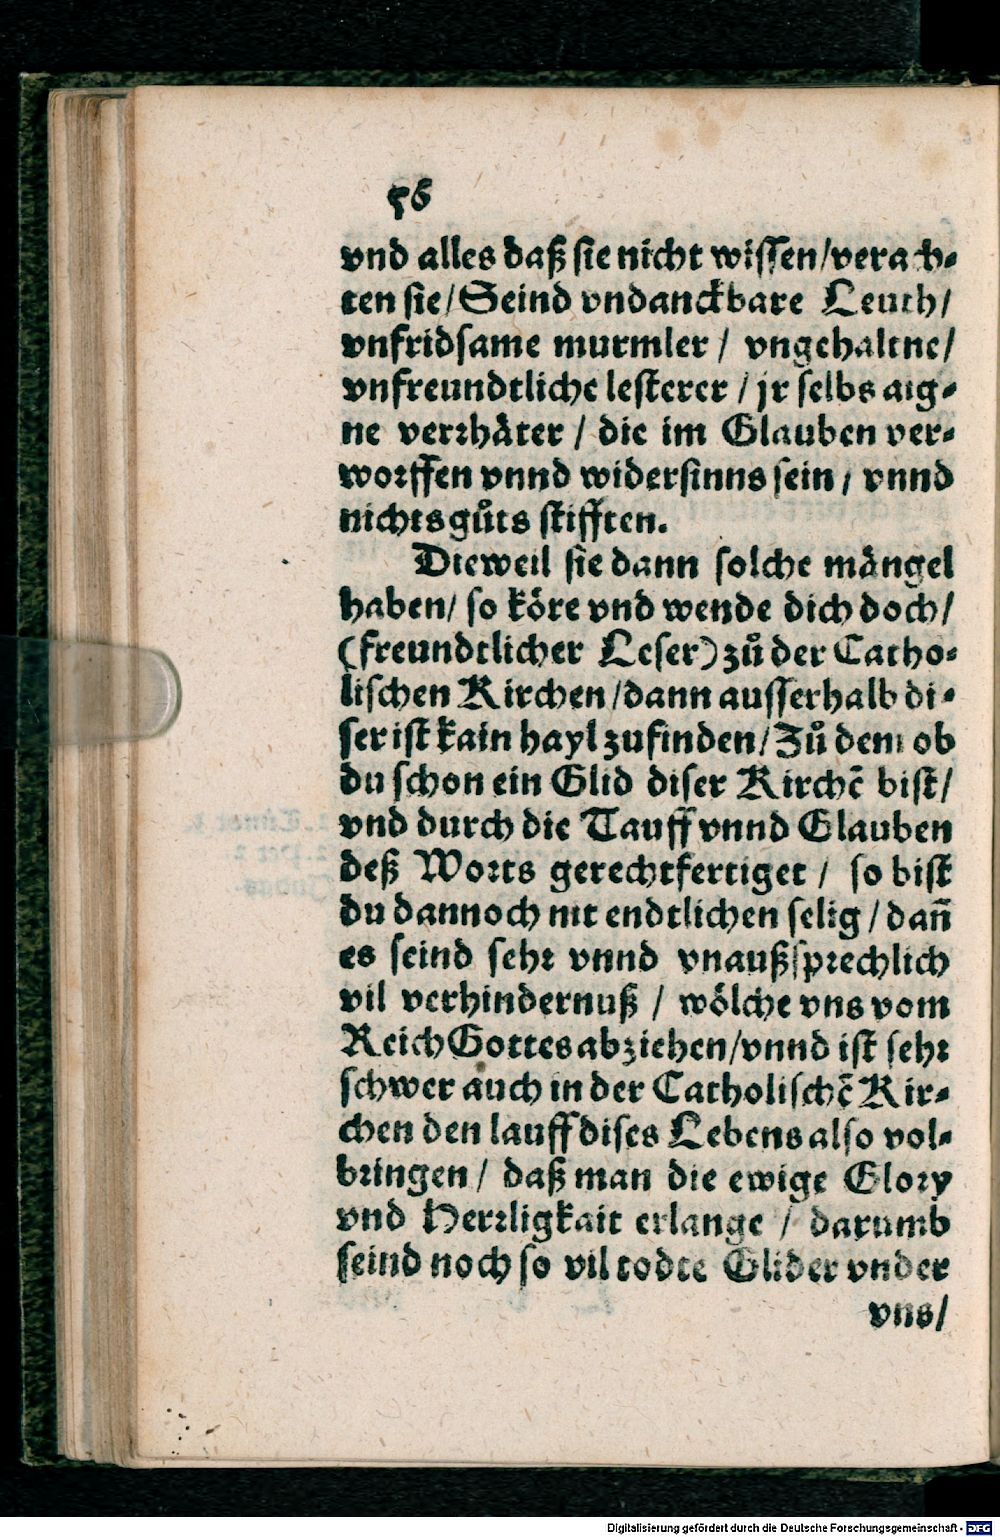 56
vnd alles daß sie nicht wissen/verach-
ten sie/Seind vndanckbare Leuth/
vnfridsame murmler / vngehaltne/
vnfreundtliche lesterer / jr selbs aig-
ne verrhäter / die im Glauben ver-
worffen vnnd widersinns sein / vnnd
nichts gůts stifften.
Dieweil sie dann solche mängel
haben/ so köre vnd wende dich doch/
(freundtlicher Leser) zů der Catho-
lischen Kirchen/dann ausserhalb di-
ser ist kain hayl zufinden/Zů dem ob
du schon ein Glid diser Kirchē bist/
vnd durch die Tauff vnnd Glauben
deß Worts gerechtfertiget / so bist
du dannoch nit endtlichen selig / dañ
es seind sehr vnnd vnaußsprechlich
vil verhindernuß / wölche vns vom
Reich Gottes abziehen/vnnd ist sehr
schwer auch in der Catholischē Kir-
chen den lauff dises Lebens also vol-
bringen / daß man die ewige Glory
vnd Herrligkait erlange / darumb
seind noch so vil todte Glider vnder
vns/
Digitalisierung gefördert durch die Deutsche Forschungsgemeinschaft - DFG